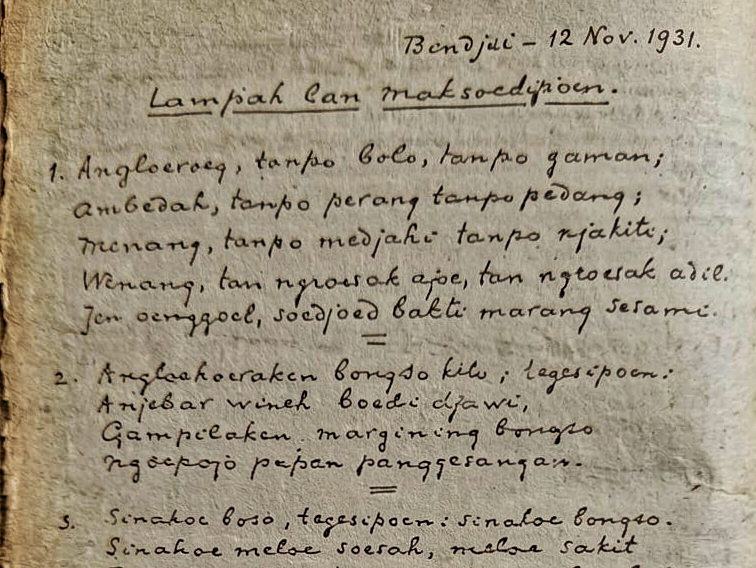 Bendjai – 12 Nov. 1931.
Lampah lan maksoedipoen.
1. Angloeroeg, tanpo bolo, tanpo gaman;
Ambedah, tanpo perang tanpo pedang;
Menang, tanpo medjahi tanpo njakiti;
Wenang, tan ngroesak ajoe, tan ngroesak adil.
Jen oenggoel, soedjoed bakti marang sesami.
2. Angloehoeraken bongso kito; tegesipoen:
Anjebar wineh boedi djawi,
Gampilaken margining bongso
ngoepojo papan panggesangan.
3. Sinahoe boso, tegesipoen: sinahoe bongso.
Sinahoe meloe soesah, meloe sakit